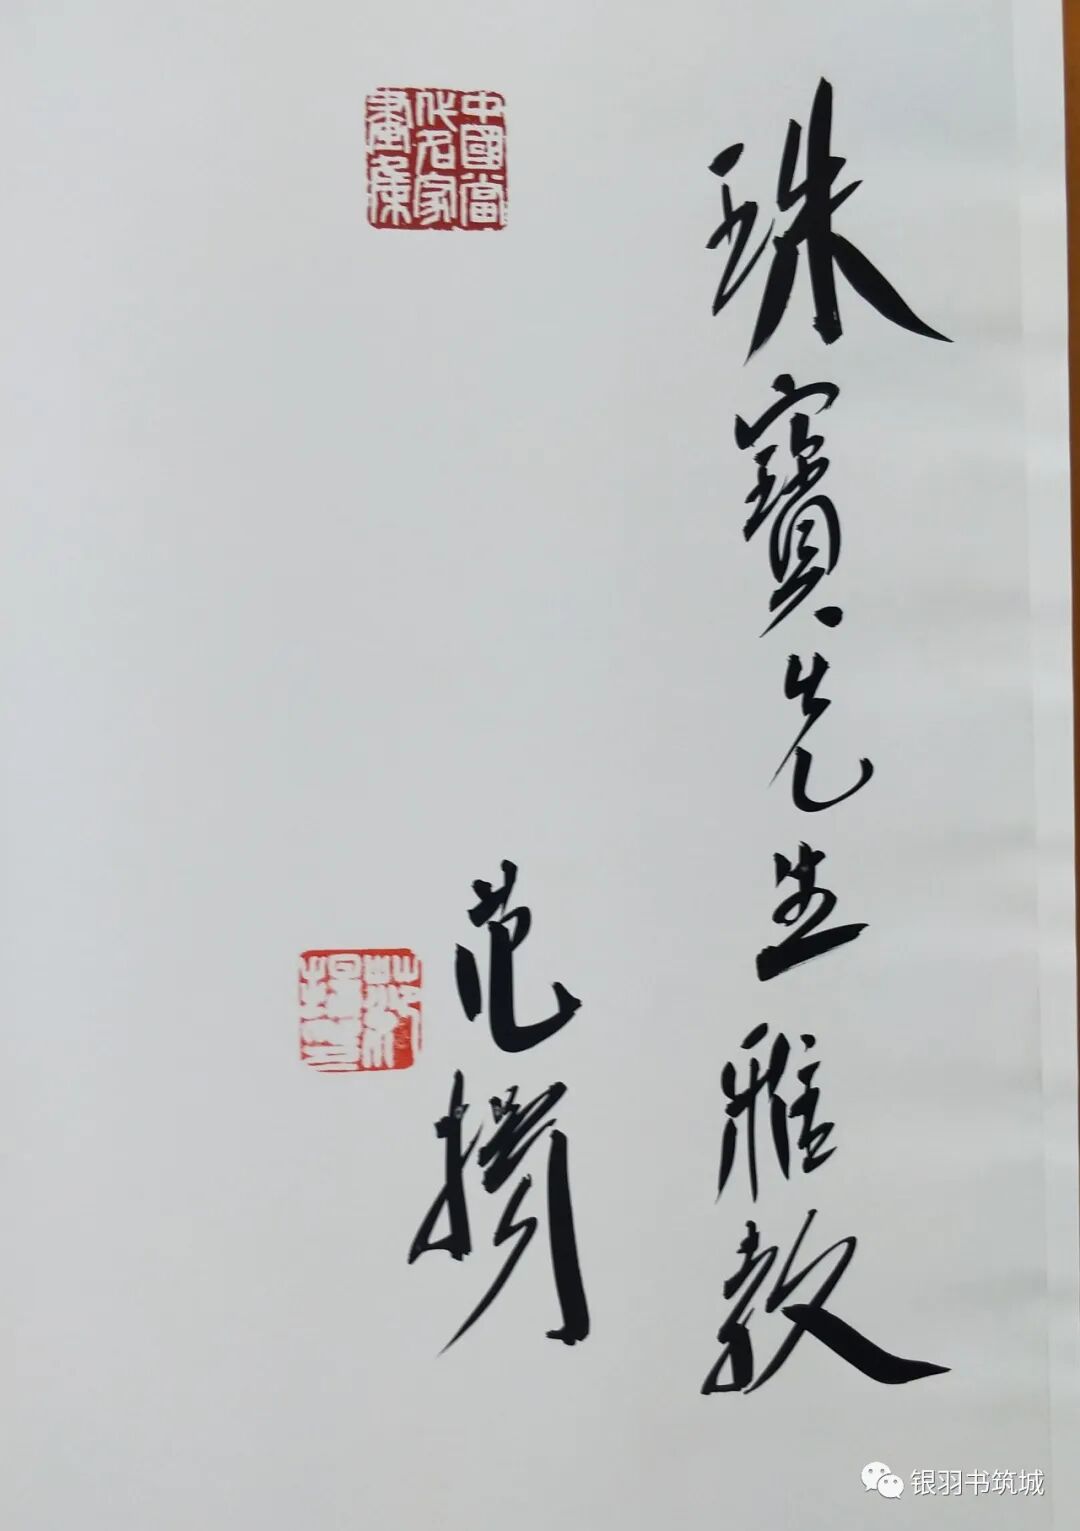 珠寶先生雅教
范揚
中國當
代名家
畫集
范揚
银羽书筑城